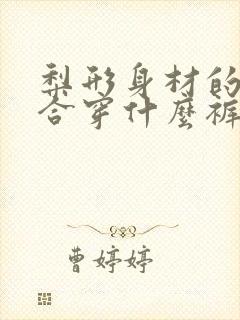 梨形身材的
合穿什麼褲
曹婷婷